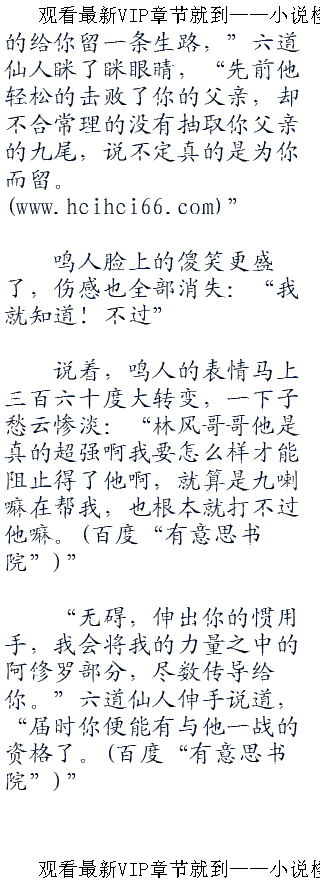 观看最新VIP章节就到——小说检
的给你留一条生路，”六道
仙人眯了眯眼睛，“先前他
轻松的击败了你的父亲，却
不合常理的没有抽取你父亲
的九尾，说不定真的是为你
而留。
(www.hcihci66.com)”
鸣人脸上的傻笑更盛
了，伤感也全部消失：“我
就知道！不过”
说着，鸣人的表情马上
三百六十度大转变，一下子
愁云惨淡：“林风哥哥他是
真的超强啊我要怎么样才能
阻止得了他啊，就算是九喇
嘛在帮我，也根本就打不过
他嘛。(百度“有意思书
院”)”
“无碍，伸出你的惯用
手，我会将我的力量之中的
阿修罗部分，尽数传导给
你。”六道仙人伸手说道，
“届时你便能有与他一战的
资格了。(百度“有意思书
院”)”
观看最新VIP章节就到——小说检